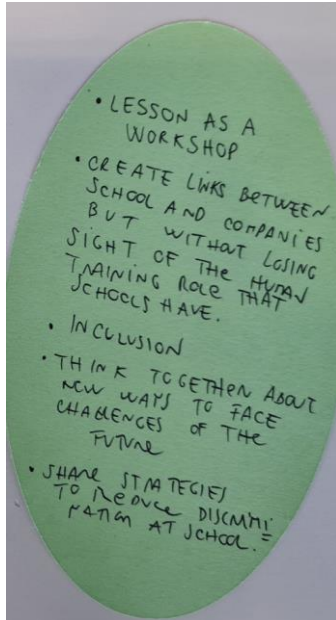 • LESSON AS A
WORKSHOP
• CREATE LINKS BETWEEN
SCHOOL AND COMPANIES
BUT WITHOUT LOSING
SIGHT OF THE HUMAN
TRAINING ROLE THAT
SCHOOLS HAVE.
• INCLUSION
• THINK TOGETHER ABOUT
NEW WAYS TO FACE
CHALLENGES OF THE
FUTURE
• SHARE STRATEGIES
TO REDUCE DISCRIMI=
NATION AT SCHOOL.